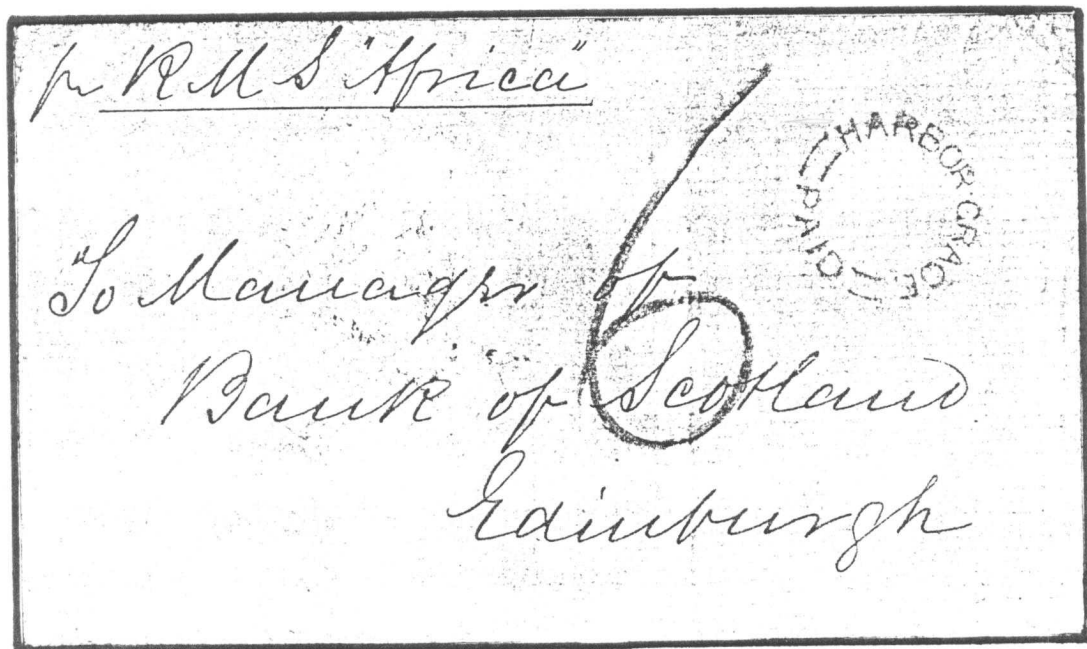 pr RMS "Africa"
HARBOR·GRACE
PAID
6
To Manager of
Bank of Scotland
Edinburgh